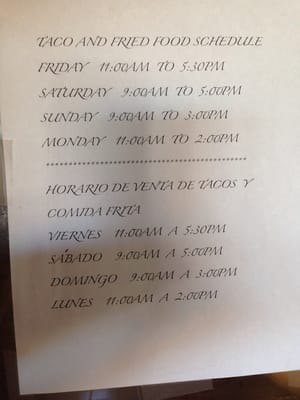 TACO AND FRIED FOOD SCHEDULE
FRIDAY 11:00AM TO 5:30PM
SATURDAY 9:00AM TO 5:00PM
SUNDAY 9:00AM TO 3:00PM
MONDAY 11:00AM TO 2:00PM
********************************************
HORARIO DE VENTA DE TACOS Y
COMIDA FRITA
VIERNES 11:00AM A 5:30PM
SÁBADO 9:00AM A 5:00PM
DOMINGO 9:00AM A 3:00PM
LUNES 11:00AM A 2:00PM